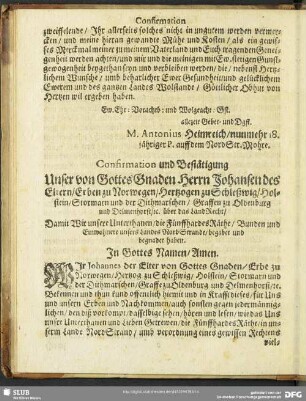 Confirmation
zweiffelende / Ihr allerseits solches nicht in ungutem werden vermercken /
und meine hieran gewandte Mühe und Kosten / als ein gewisses
Merckmal meiner zu meinem Vaterland und Euch tragenden Geneigenheit
werden achten / und mir und die meinigen mit Ew. stetigen Gunstgewogenheit
beygethan seyn und verbleiben werden / die / nebenst hertzlichem
Wunsche / umb beharlicher Ewer Gesundheit / und glücklichem
Ewrem und des gantzen Landes Wolstande / Göttlicher Obhut von
Hertzen wil ergeben haben.
Ew. Ehr: Votachtb: und Wolgeacht: Gst.
allezeit Gebet- und Dgst.
M. Antonius Heinreich / nunmehr 18.
jähriger P. auff dem Nord Str. Mohre.
Confirmation und Bestätigung
Unser von Gottes Gnaden Herrn Johansen des
Eltern / Erben zu Norwegen / Hertzogen zu Schleßwig / Holstein /
Stormarn und der Dithmarschen / Graffen zu Oldenburg
und Delmenhorst / ic. über das Land Recht /
Damit Wir unser Unterthanen / die Fünff hardes Räthe / Bunden und
Einwohner unsers Landes Nord Strande / begabet und
begnadet haben.
In Gottes Namen / Amen.
WIr Johannes der Elter von Gottes Gnaden / Erbe zu
Norwegen / Hertzog zu Schleßwig / Holstein / Stormarn und
der Dithmarschen / Graffe zu Oldenburg und Delmenhorst / ic.
Bekennen und thun kund offentlich hiemit und in Krafft dieses / für Uns
und unsern Erben und Nachkommen / auch sonsten gegen jedermänniglichen /
den diß vorkompt / dasselbige sehen / hören und lesen / wie das Uns
unser Unterthanen und Lieben Getrewen / die Fünffhardes Räthe / in unserm
Lande Nord Strand / umb verordnung eines gewissen Rechtens /
viel-
SLUB
DFG